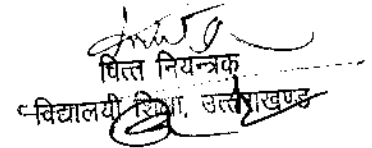 वित्त नियन्त्रक
विद्यालयी शिक्षा, उत्तराखण्ड